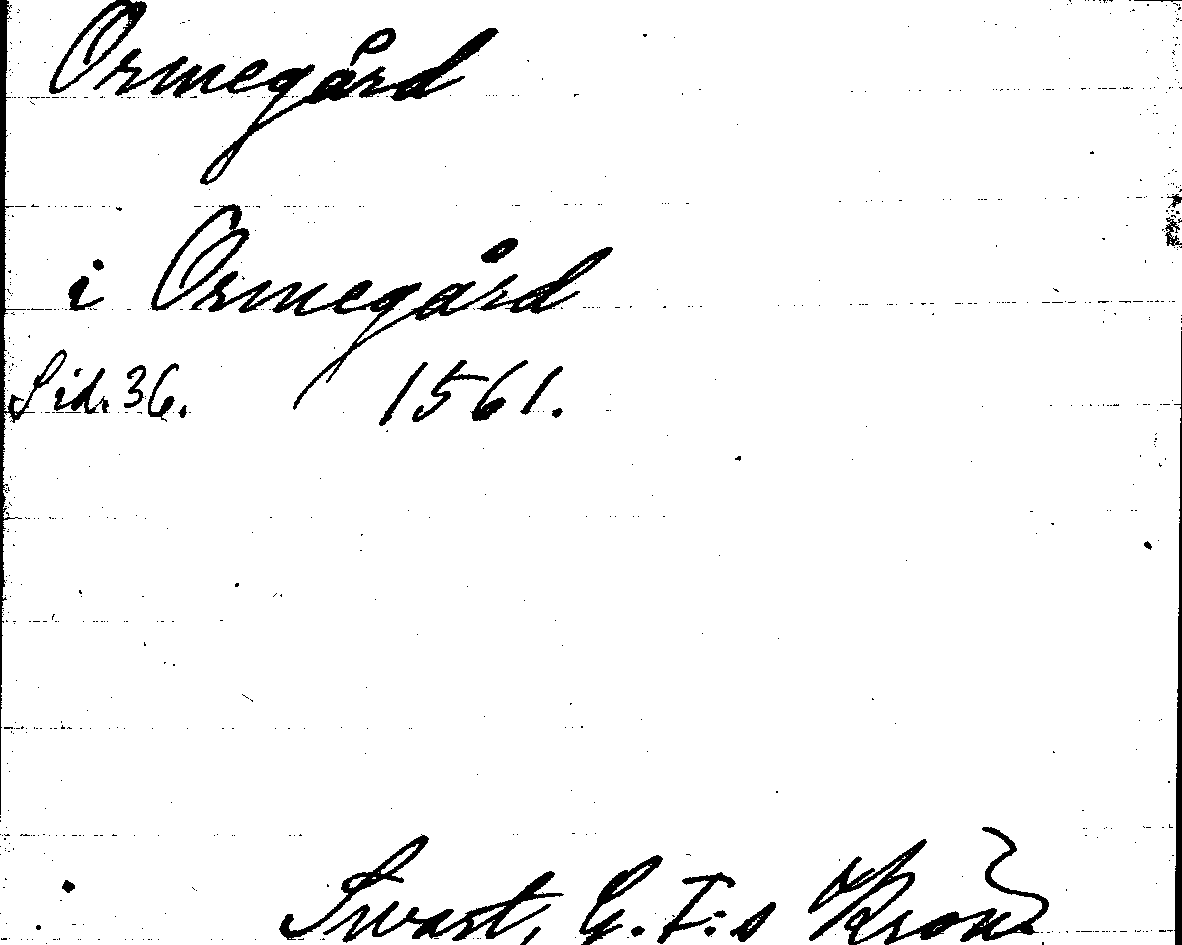 Ormegård
i Ormegård
Sid. 36. 1561.
Swart, G. I:s Krön.